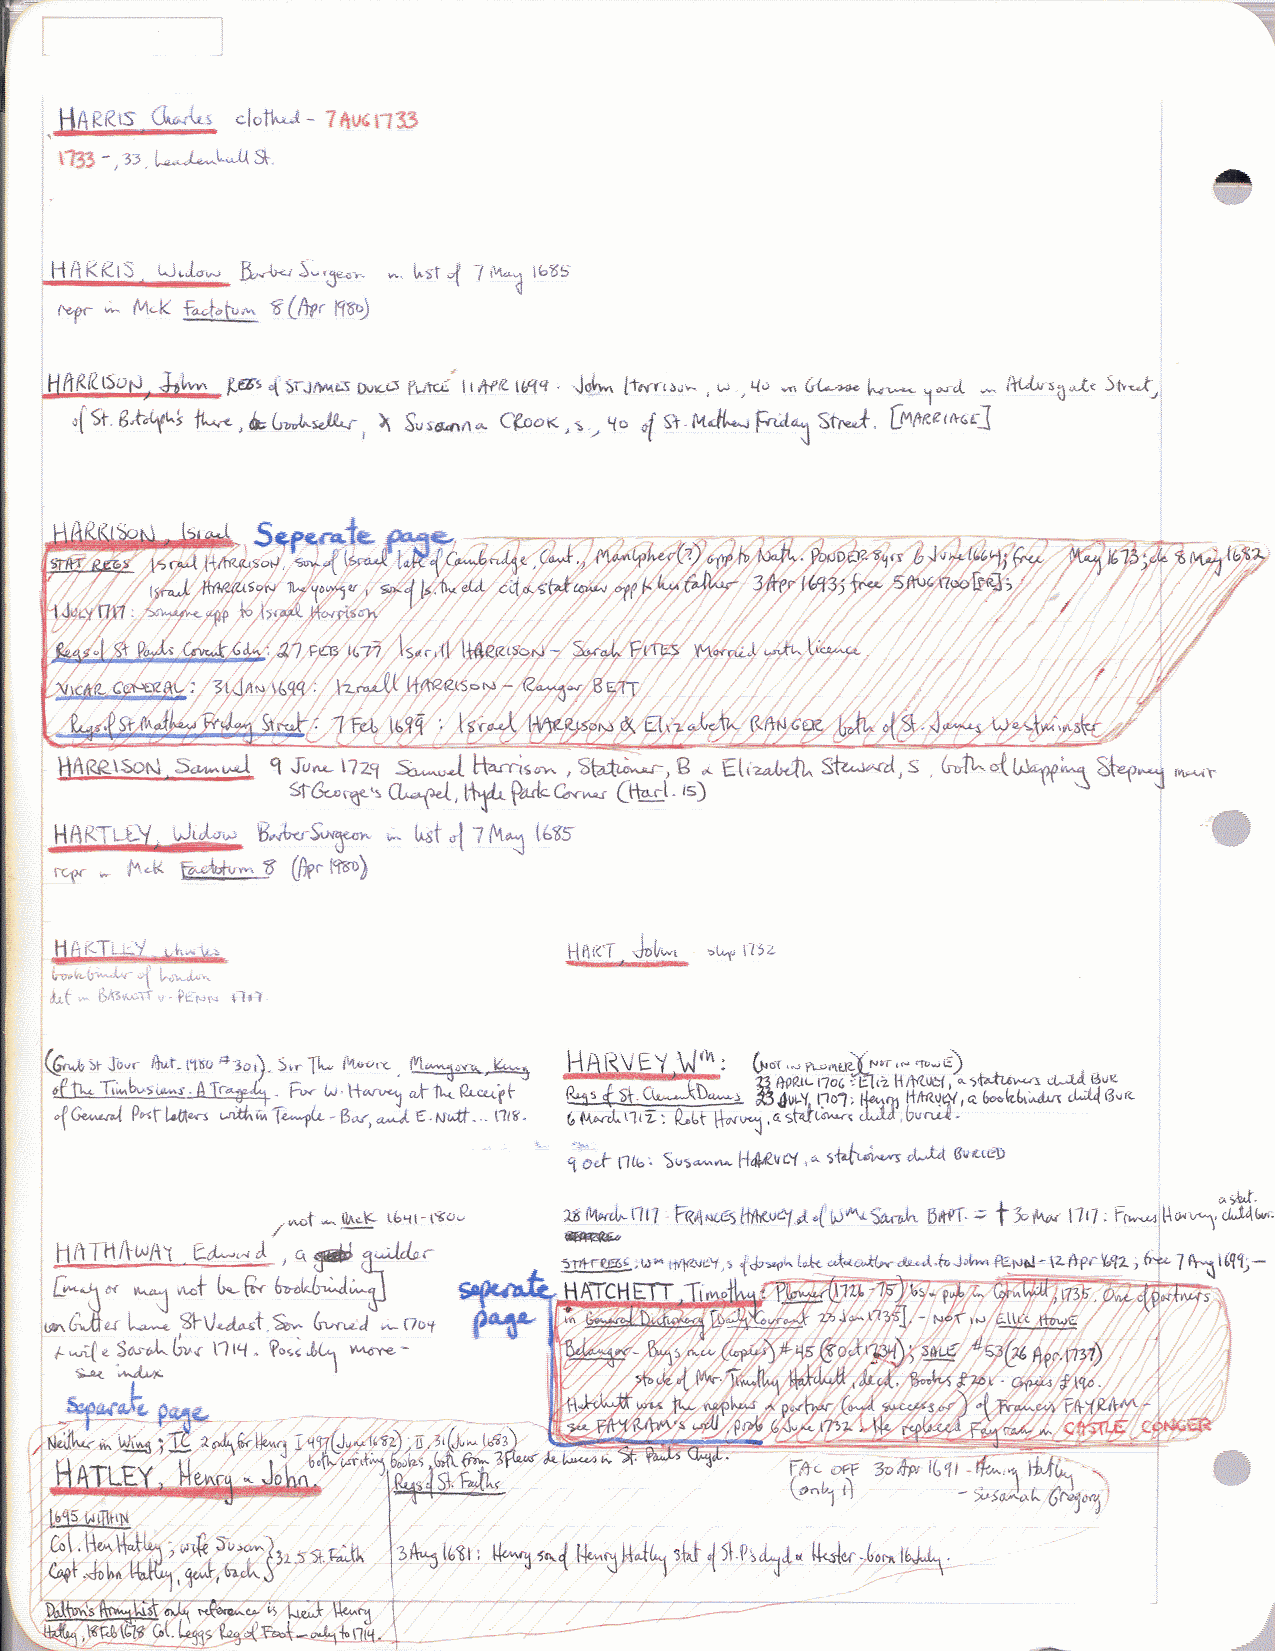 HARRIS Charles clothed - 7 AUG 1733
1733 -, 33, Leadenhall St.
HARRIS, Widow Barber Surgeon in list of 7 May 1685
repr in McK Factotum 8 (Apr 1980)
HARRISON, John REGS of ST JAMES DUKES PLACE 11 APR 1699. John Harrison, w., 40 in Glasse house yard in Aldersgate Street,
of St. Botolph's there, bookseller, & Susanna CROOK, s., 40 of St. Mathew Friday Street. [MARRIAGE]
HARRISON, Israel Seperate page
STAT REGS Israel HARRISON, son of Israel late of Cambridge, Cant., Manlpher(?) app to Nath. PONDER 8yrs 6 June 1664; free May 1673; clo 8 May 1682
Israel HARRISON the younger, son of Is. the eld cit & stationer app to his father 3 Apr 1693; free 5 AUG 1700 [FR];
1 JULY 1717: Someone app to Israel Harrison
Regs of St Pauls Covent Gdn: 27 FEB 1677 Isarill HARRISON - Sarah FITES Married with licence.
VICAR GENERAL: 31 JAN 1699: Izraell HARRISON - Rangar BETT
Regs of St Mathew Friday Street: 7 Feb 1699: Israel HARRISON & Elizabeth RANGER both of St. James Westminster
HARRISON, Samuel 9 June 1729 Samuel Harrison, Stationer, B & Elizabeth Steward, S, both of Wapping Stepney
St George's Chapel, Hyde Park Corner (Harl. 15)
HARTLEY, Widow Barber Surgeon in list of 7 May 1685
repr in McK Factotum 8 (Apr 1980)
HARTLEY, Charles
bookbinder of London
def in BASKETT v - PENN 1707.
HART, John 1732
(Grub St Jour Aut. 1980 #301). Sir Tho Moore, Mangora, King
of the Timbusians. A Tragedy. For W. Harvey at the Receipt
of General Post Letters within Temple-Bar, and E. Nutt... 1718.
HARVEY, Wm: (NOT IN PLOMER)(NOT IN HOWE)
Regs of St. Clement Danes 23 APRIL 1706: Eliz HARVEY, a stationers child BUR
23 JULY 1707: Henry HARVEY, a bookbinders child BUR
6 March 1712: Robt Harvey, a stationers child, buried.
9 Oct 1716: Susanna HARVEY, a stationers child BURIED
28 March 1717 FRANCES HARVEY d of Wm & Sarah BAPT. = † 30 Mar 1717: Frances Harvey, a stat. child bur.
STAT REGS: Wm HARVEY, s of Joseph late cit & cutler decd. to John PENN - 12 Apr 1692; free 7 Aug 1699; -
not in McK 1641-1800
HATHAWAY, Edward, a guilder
[may or may not be for bookbinding]
in Gutter Lane St Vedast. Son buried in 1704
+ wife Sarah bur 1714. Possibly more -
see index
seperate page
HATCHETT, Timothy: Plomer (1726-75) bs & pub in Cornhill, 1735. One of partners
in General Dictionary [Daily Courant 25 Jan 1735]. - NOT IN Ellic HOWE
Belanger - Buys nice (copies) #45 (8 Oct 1734); SALE #53 (26 Apr. 1737)
stock of Mr. Timothy Hatchett, decd. Books £201 - copies £190.
Hatchett was the nephew & partner (and successor) of Francis FAYRAM -
see FAYRAM's will, prob 6 June 1732. He replaced Fayram in CASTLE CONGER
Separate page
Neither in Wing; TC 2 only for Henry I 497 (June 1682); II, 31 (June 1683)
both writing books, both from 3 Fleur de luces in St. Pauls Chyd.
HATLEY, Henry & John
Regs of St. Faiths
FAC OFF 30 Apr 1691 - Henry Hatley
(only 1) - Susanah Gregory
1695 WITHIN
Col. Hen Hatley; wife Susan } 32.5 St. Faith
Capt. John Hatley, gent, bach }
3 Aug 1681: Henry son of Henry Hatley stat of St. P's chyd & Hester - born 16 July.
Dalton's Army List only reference is Lieut Henry
Hatley, 18 Feb 1678 Col. Leggs Reg of Foot - only to 1714.